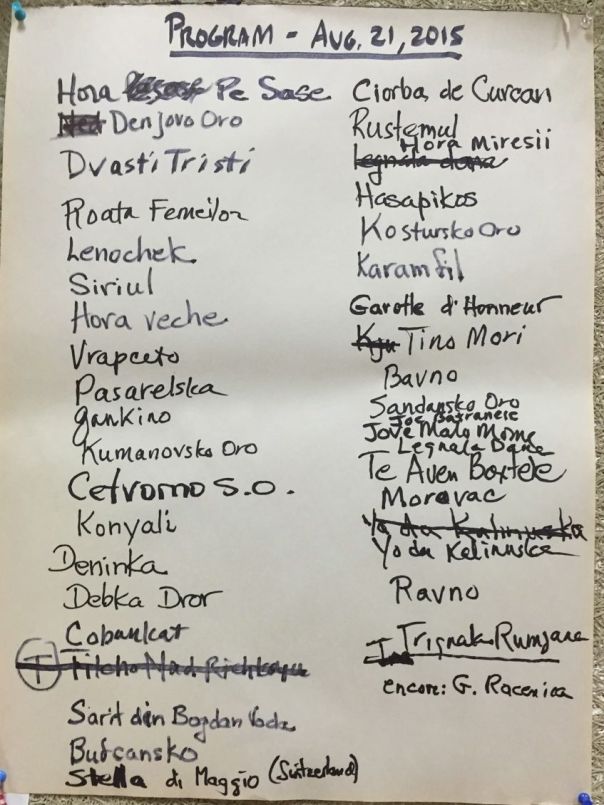 PROGRAM - AUG. 21, 2015
Hora Pe Sase
Denjovo Oro
Dvasti Tristi
Roata Femeilor
Lenochek
Siriul
Hora veche
Vrapceto
Pasarelska
gankino
Kumanovsko Oro
Cetvorno S.O.
Konyali
Deninka
Debka Dror
Cobankat
T
Sarit din Bogdan Voda
Bufcansko
Stella di Maggio (Switzerland)
Ciorba de Curcan
Rustemul
Hora Miresii
Legnala dana
Hasapikos
Kostursko Oro
Karamfil
Garotte d'Honneur
Tino Mori
Bavno
Sandansko Oro
Joc Batranesc
Jove Malo Mome
Legnala Dane
Te Aven Baxtele
Moravac
Yo da Kalinuska
Yo da Kalinuska
Ravno
Trignala Rumjana
encore: G. Racenica